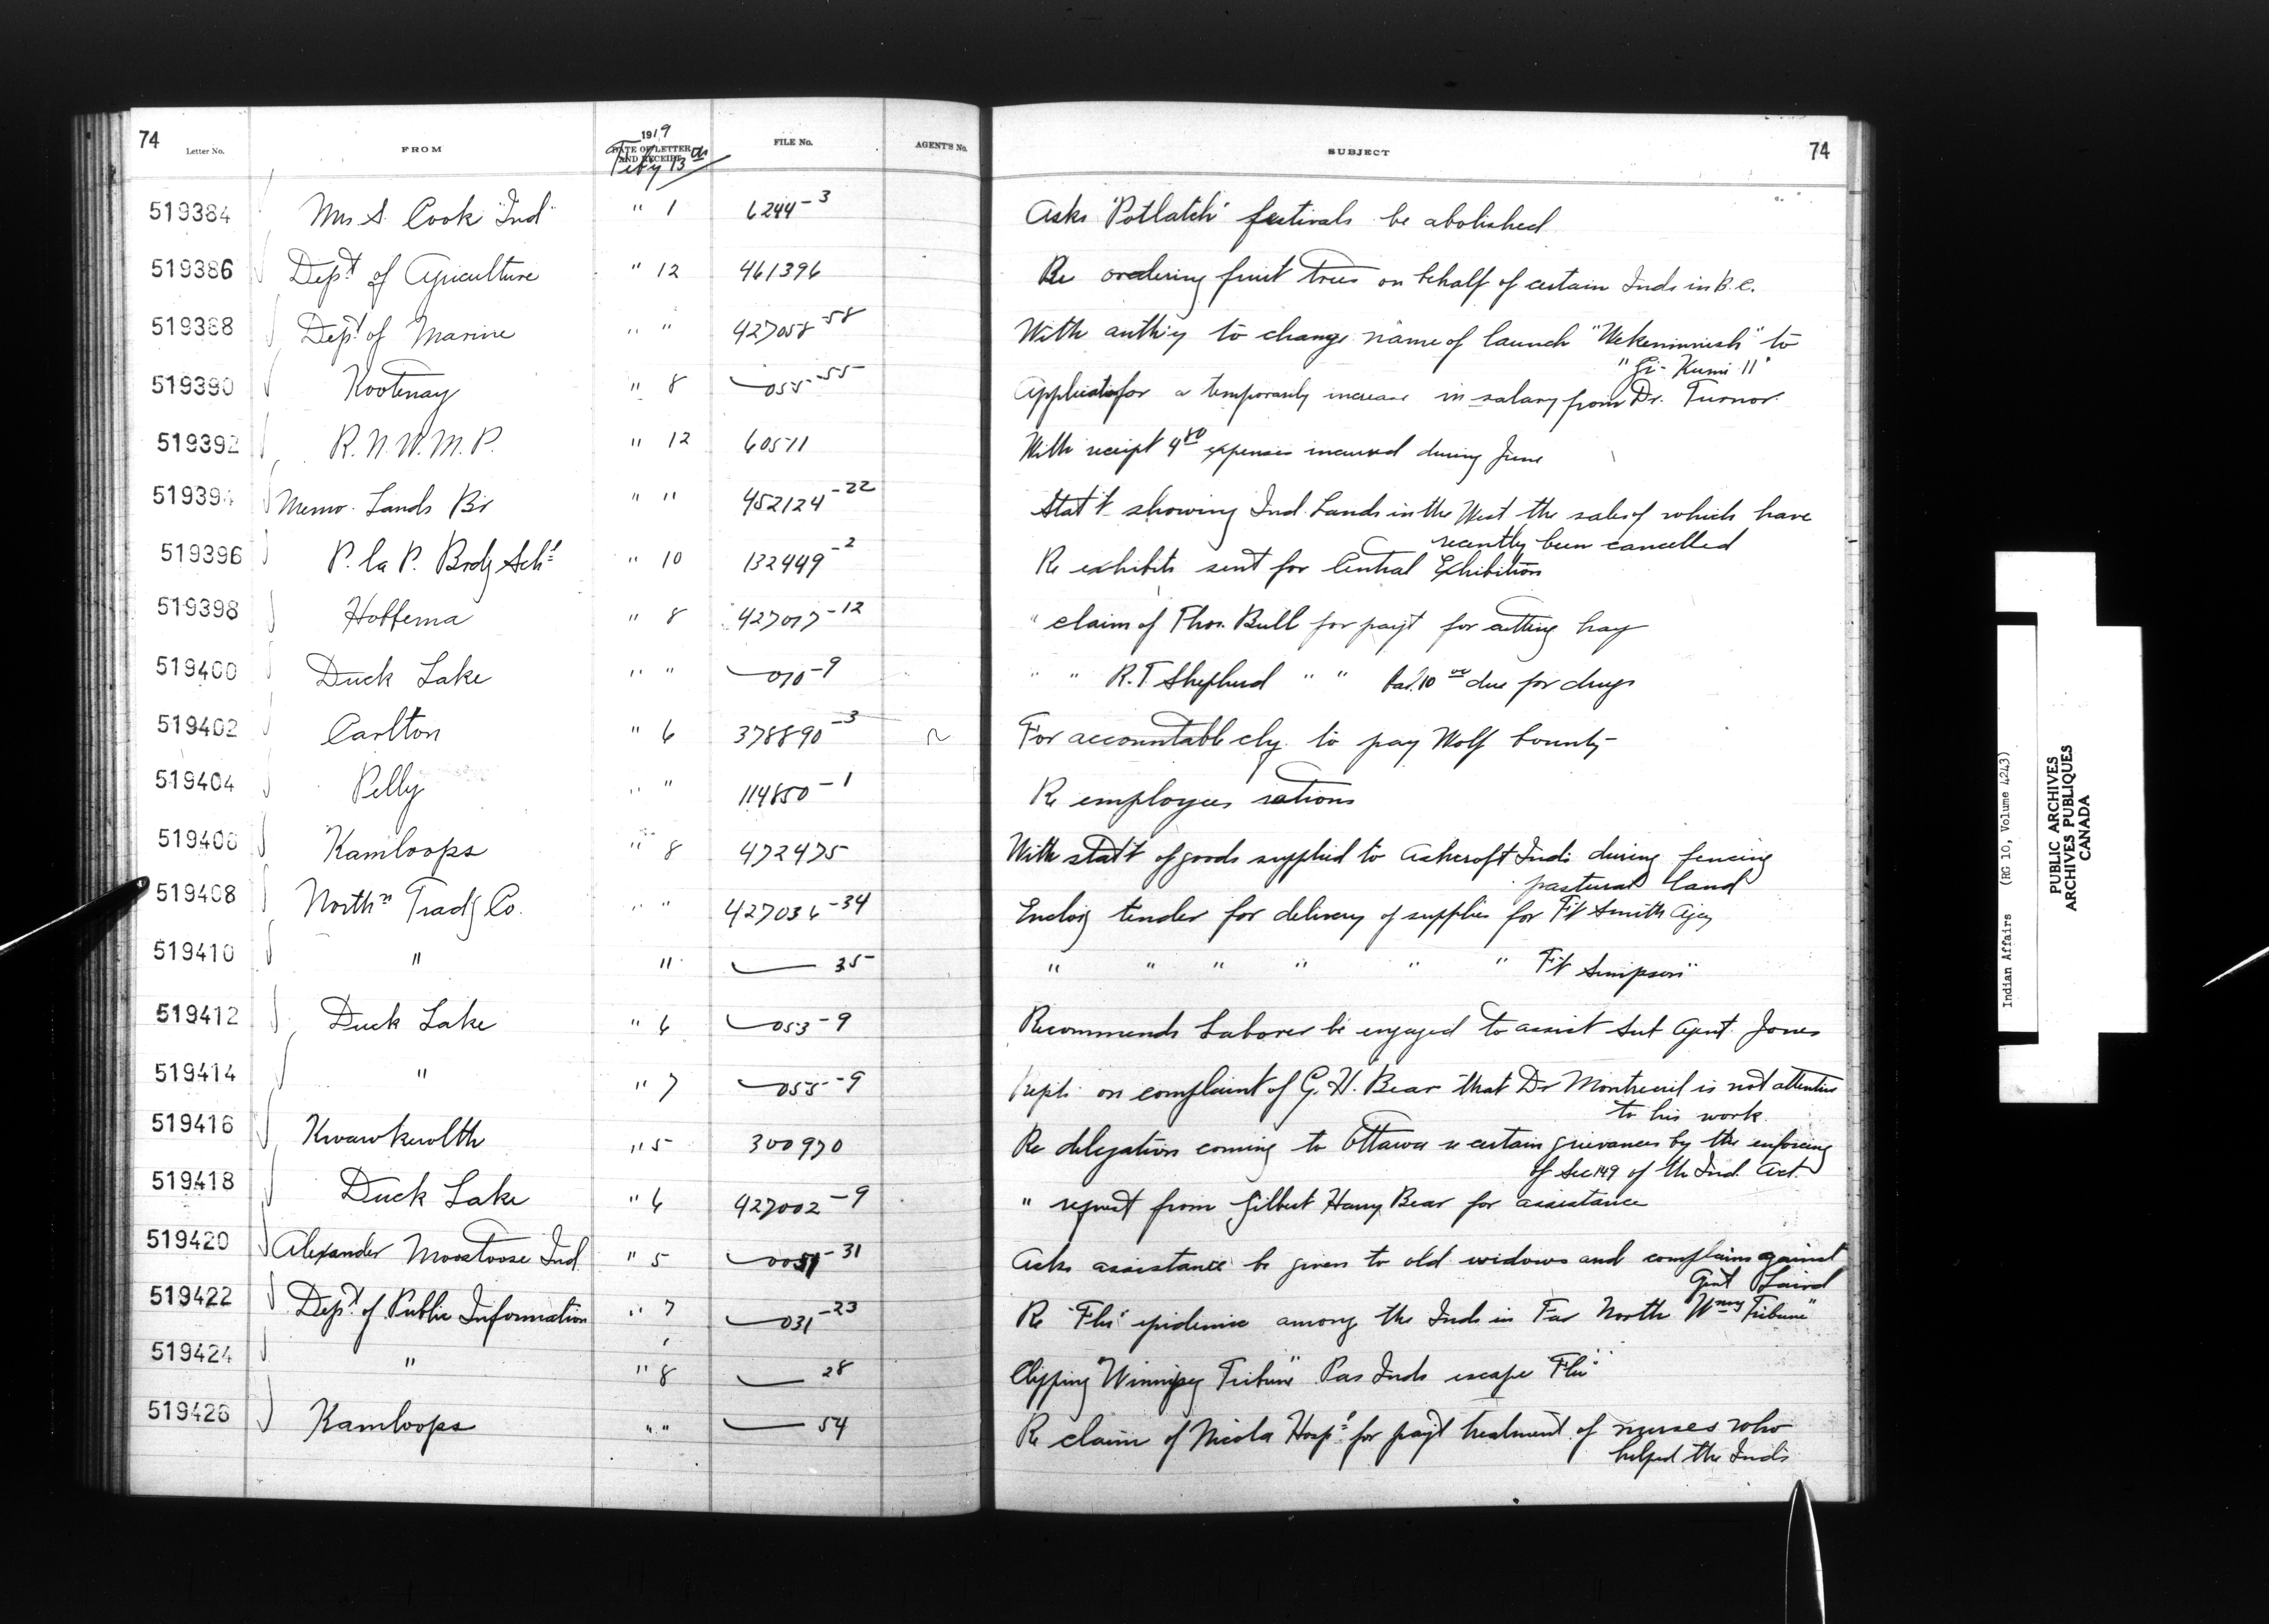 74 Letter No. FROM 1919 DATE OF LETTER AND RECEIPT Feby 13th FILE No. AGENT'S No. SUBJECT 74
519384 Mrs S. Cook "Ind" " 1 6244-3 Asks "Potlatch" festivals be abolished
519386 Dept of Agriculture " 12 461396 Re ordering fruit trees on behalf of certain Inds in B.C.
519388 Dept of Marine " " 427058-58 With auth'y to change name of launch to
"Gi-Kumi II"
519390 Kootenay " 8 055-55 Application for a temporarily increase in salary from Dr. Turnor.
519392 R.N.W.M.P. " 12 60511 With receipt 4.80 expenses incurred during June
519394 Memo. Lands Br " " 452124-22 Stat't showing Ind. Lands in the West the sales of which have
recently been cancelled
519396 P. la P. Brdg Schl " 10 132449-2 Re exhibits sent for Central Exhibition
519398 Hobbema " 8 427017-12 " claim of Thos. Bull for pay't for cutting hay
519400 Duck Lake " " 010-9 " " R.T. Shepherd " " bal. 10 due for drugs
519402 Carlton " 6 378890-3 For accountable chq. to pay Wolf bounty
519404 Pelly " " 114850-1 Re employees rations
519406 Kamloops " 8 472475 With stat't of goods supplied to Ashcroft Inds during fencing
pasture land
519408 Northn Tradg Co. " " 427036-34 Enclos'g tender for delivery of supplies for Ft Smith Agcy
519410 " " 35 " " " " " " Ft Simpson "
519412 Duck Lake " 6 053-9 Recommends Laborer be engaged to assist Sub Agent Jones
519414 " " 7 055-9 Repts on complaint of G. H. Bear that Dr Montreuil is not attentive
to his work.
519416 Kwawkewlth " 5 300970 Re delegation coming to Ottawa re certain grievances by the enforcing
of Sec 149 of the Ind. Act.
519418 Duck Lake " 6 427002-9 " request from Gilbert Harry Bear for assistance
519420 Alexander Moostoose Ind " 5 -31 Asks assistance be given to old widows and complains against
Agnt Laird
519422 Dept of Public Information " 7 031-23 Re "Flu" epidemic among the Inds in Far North Wnpg Tribune"
519424 " " 8 28 Clipping "Winnipeg Tribune" Pas Inds escape "Flu"
519426 Kamloops " " 54 Re claim of Nicola Hospl for pay't treatment of nurses who
helped the Inds
Indian Affairs (RG 10, Volume 4243)
PUBLIC ARCHIVES
ARCHIVES PUBLIQUES
CANADA